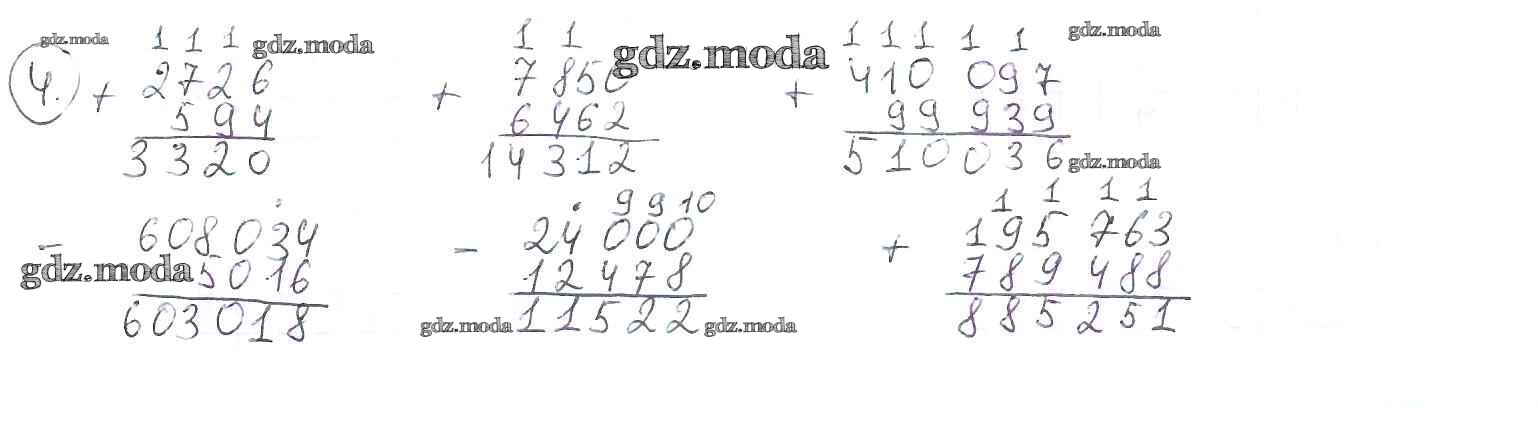 gdz.moda 1 1 1 gdz.moda 1 1 gdz.moda 1 1 1 1 1 gdz.moda
4. + 2726 + 7850 + 410 097
594 6462 99 939
3320 14312 510036 gdz.moda
9 9 10 1 1 1 1
- 608034 - 24 000 + 195 763
gdz.moda 5016 12 478 789 488
603018 gdz.moda 11522 gdz.moda 885 251